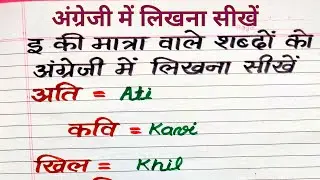 अंग्रेजी में लिखना सीखें
इ की मात्रा वाले शब्ढों को
अंग्रेजी में लिखना सीखें
अति = Ati
कवि = Kavi
खिल = Khil